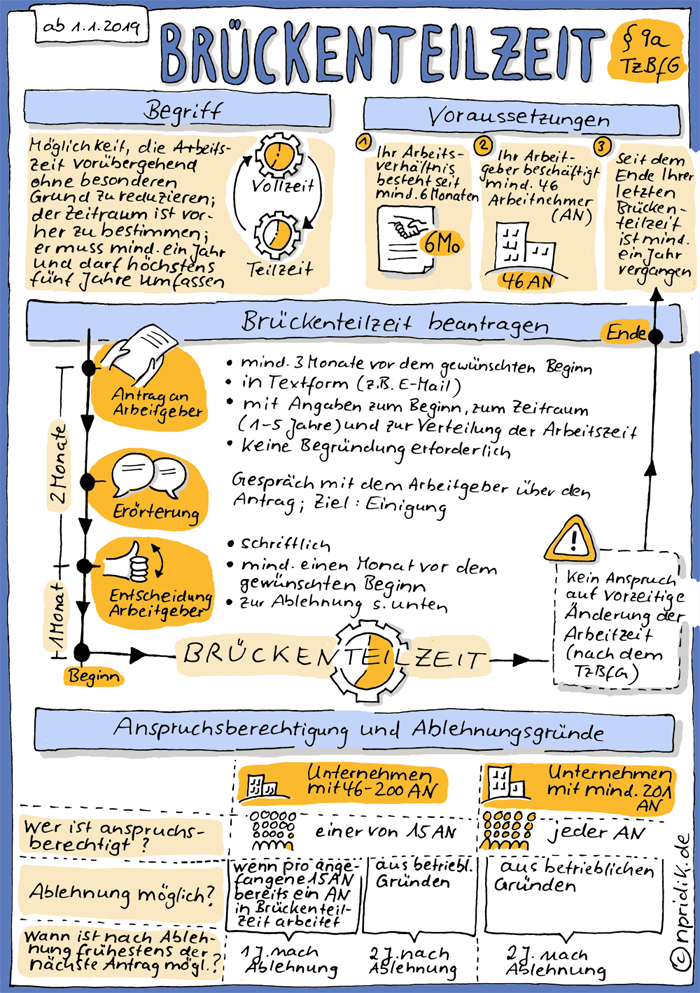 ab 1.1.2019
BRÜCKENTEILZEIT
§ 9a
TzBfG
Begriff
Möglichkeit, die Arbeits-
zeit vorübergehend
ohne besonderen
Grund zu reduzieren;
der Zeitraum ist vor-
her zu bestimmen;
er muss mind. ein Jahr
und darf höchstens
fünf Jahre umfassen
Vollzeit
Teilzeit
Voraussetzungen
1
Ihr Arbeits-
verhältnis
besteht seit
mind. 6 Monaten
6 Mo
2
Ihr Arbeit-
geber beschäftigt
mind. 46
Arbeitnehmer
(AN)
46 AN
3
Seit dem
Ende Ihrer
letzten
Brücken-
teilzeit
ist mind.
ein Jahr
vergangen
Brückenteilzeit beantragen
Ende
2 Monate
1 Monat
Antrag an
Arbeitgeber
• mind. 3 Monate vor dem gewünschten Beginn
• in Textform (z.B. E-Mail)
• mit Angaben zum Beginn, zum Zeitraum
(1-5 Jahre) und zur Verteilung der Arbeitszeit
• keine Begründung erforderlich
Erörterung
Gespräch mit dem Arbeitgeber über den
Antrag; Ziel: Einigung
Entscheidung
Arbeitgeber
• schriftlich
• mind. einen Monat vor dem
gewünschten Beginn
• zur Ablehnung s. unten
Beginn
BRÜCKENTEILZEIT
!
Kein Anspruch
auf vorzeitige
Änderung der
Arbeitzeit
(nach dem
TzBfG)
Anspruchsberechtigung und Ablehnungsgründe
Unternehmen
mit 46-200 AN
Unternehmen
mit mind. 201
AN
Wer ist anspruchs-
berechtigt?
einer von 15 AN
jeder AN
Ablehnung möglich?
wenn pro ange-
fangene 15 AN
bereits ein AN
in Brückenteil-
zeit arbeitet
aus betriebl.
Gründen
aus betrieblichen
Gründen
Wann ist nach Ableh-
nung frühestens der
nächste Antrag mögl.?
1 J. nach
Ablehnung
2 J. nach
Ablehnung
2 J. nach
Ablehnung
©npridik.de